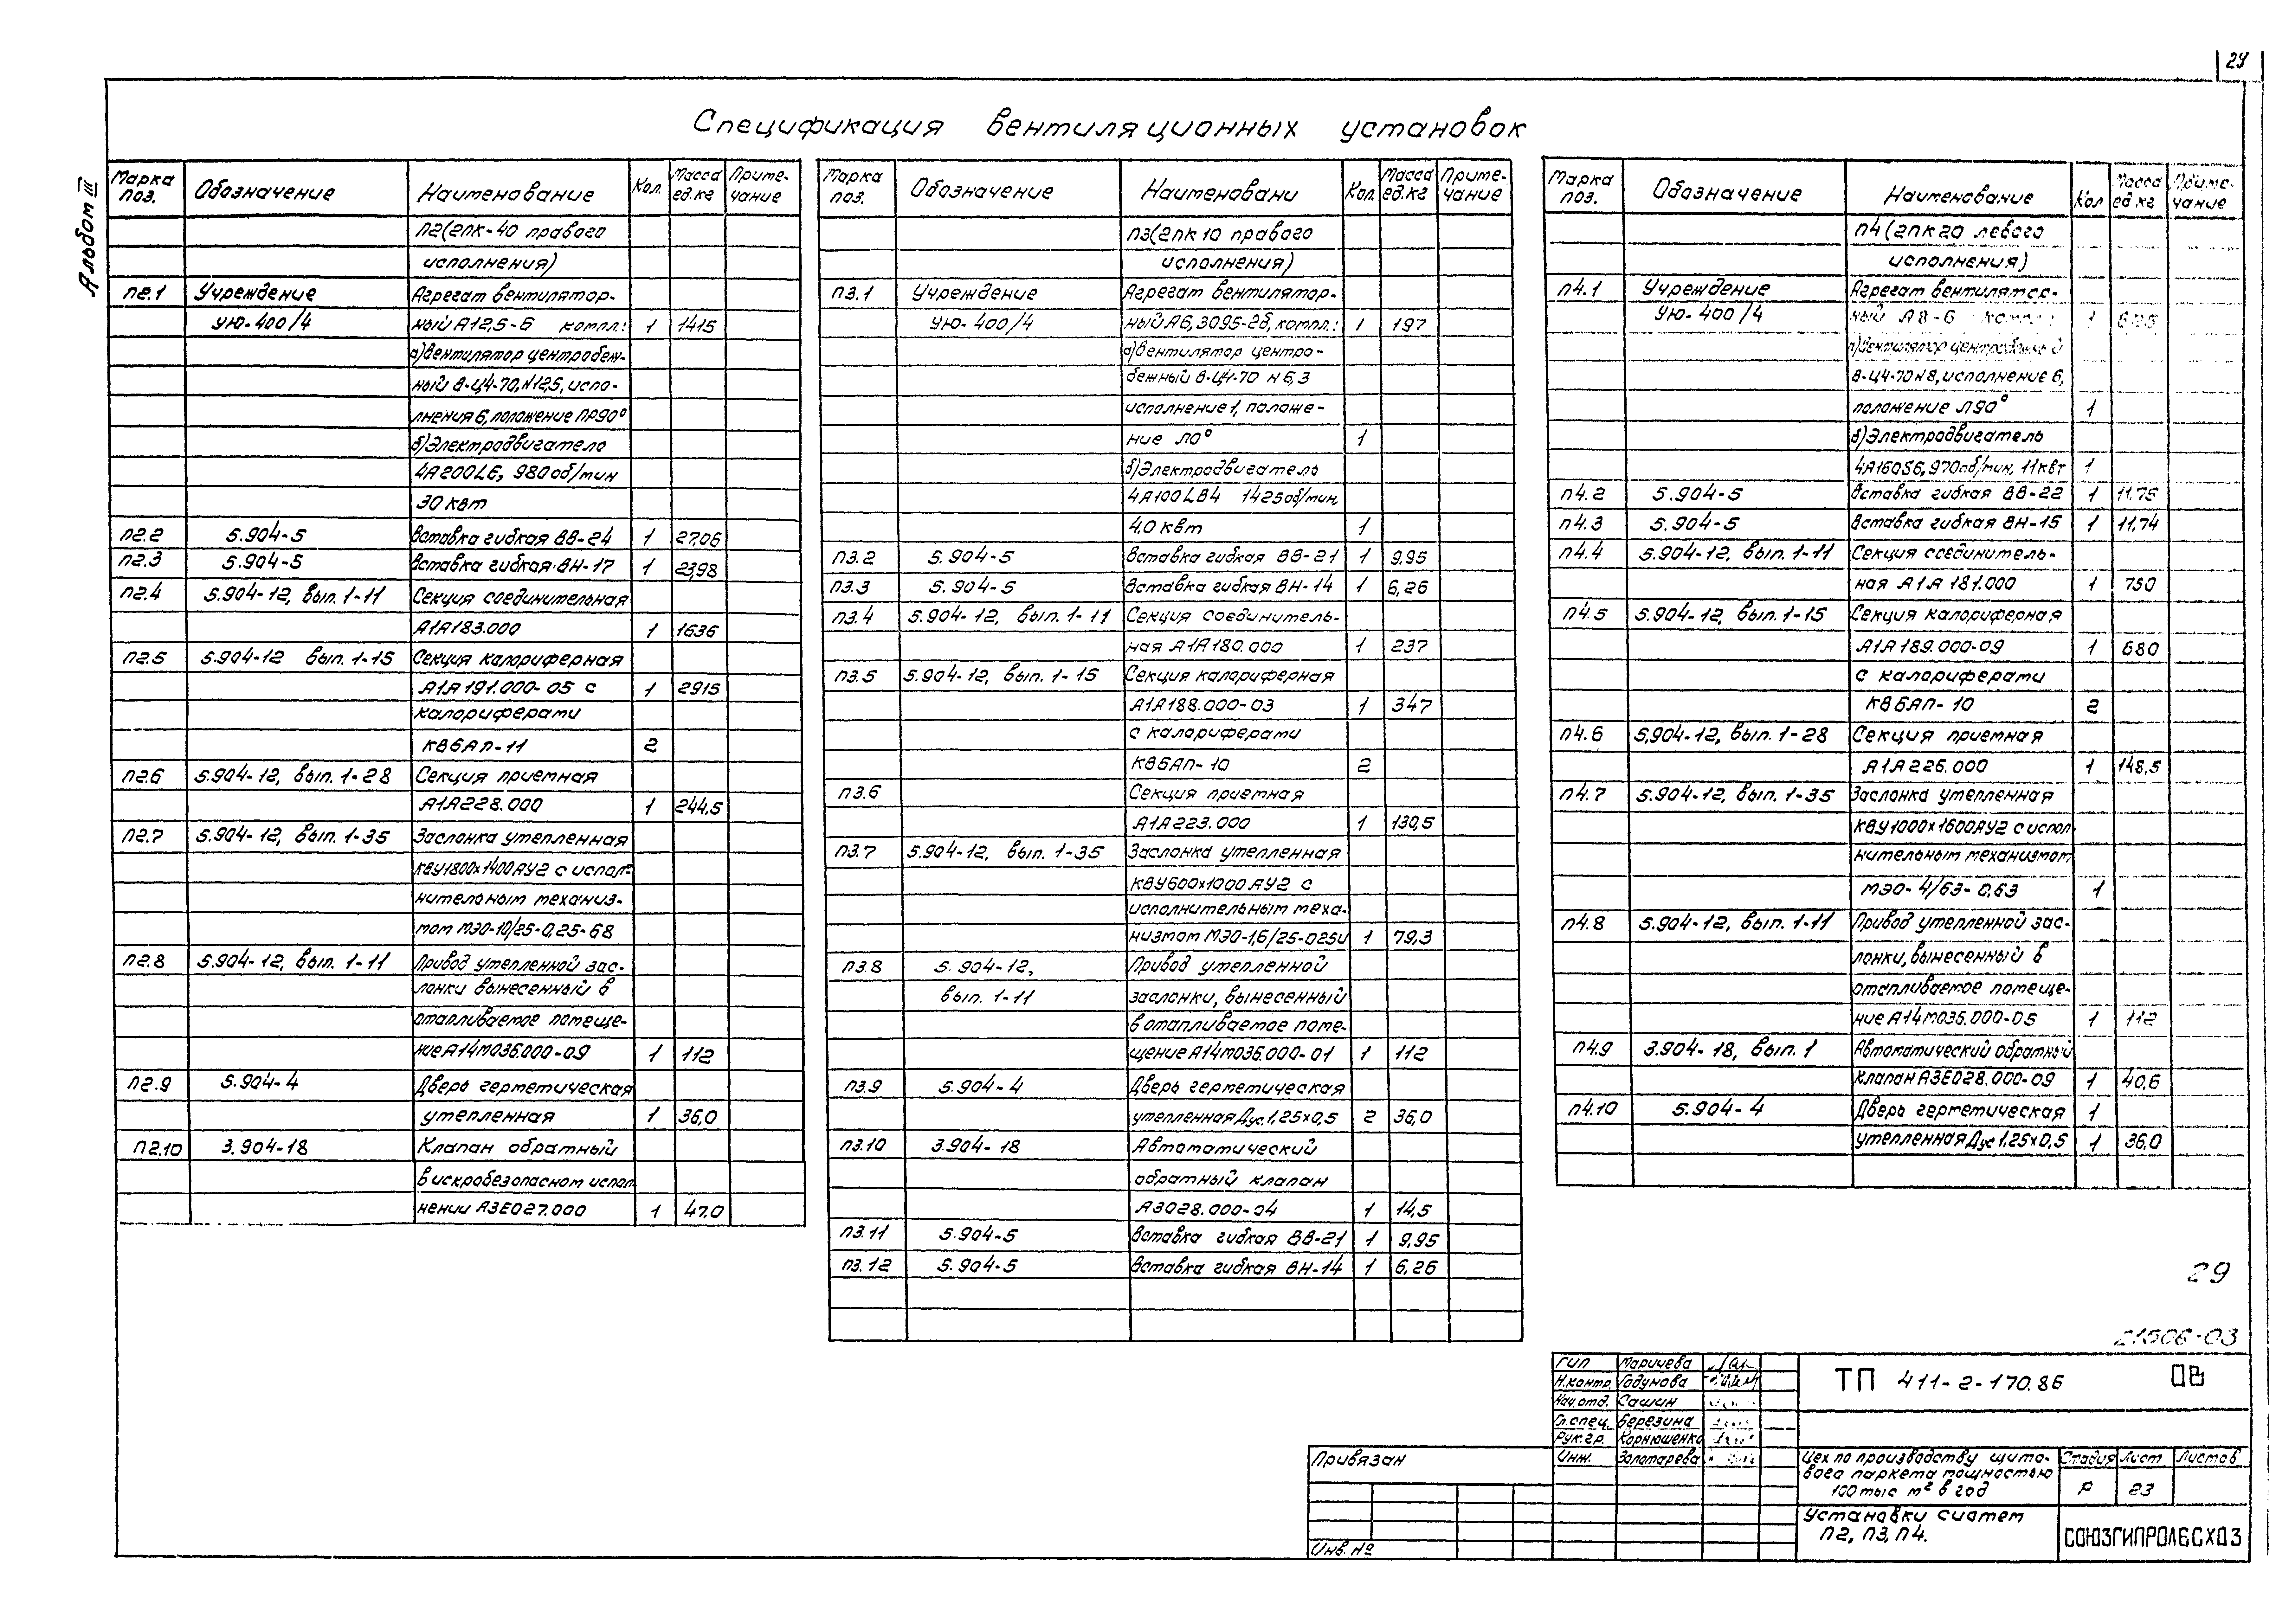 29
Альбом III
Спецификация вентиляционных установок
Марка поз. Обозначение Наименование Кол. Масса ед.кг Приме-чание
П2(2ПК-40 правого
исполнения)
П2.1 Учреждение Агрегат вентилятор-
УЮ-400/4 ный А12,5-6 компл.: 1 1415
а)вентилятор центробеж-
ный В-Ц4-70,N12,5, испо-
лнения 6, положение ПР90°
б)Электродвигатело
4А200L6, 980об/мин
30 квт
П2.2 5.904-5 Вставка гибкая ВВ-24 1 27,06
П2.3 5.904-5 Вставка гибкая ВН-17 1 23,98
П2.4 5.904-12, вып. 1-11 Секция соединительная
А1А183.000 1 1636
П2.5 5.904-12 вып. 1-15 Секция калориферная
А1А191.000-05 с 1 2915
калориферами
КВБАП-11 2
П2.6 5.904-12, вып. 1-28 Секция приемная
А1А228.000 1 244,5
П2.7 5.904-12, вып. 1-35 Заслонка утепленная
КВУ1800х1400АУ2 с испол-
нительным механиз-
мом МЭО-10/25-0,25-68
П2.8 5.904-12, вып. 1-11 Привод утепленной зас-
лонки вынесенный в
отапливаемое помеще-
ние А14М036.000-09 1 112
П2.9 5.904-4 Дверь герметическая
утепленная 1 36,0
П2.10 3.904-18 Клапан обратный
в искробезопасном испол
нении А3Е027.000 1 47,0
Марка поз. Обозначение Наименовани Кол. Масса ед.кг Приме-чание
П3(2ПК10 правого
исполнения)
П3.1 Учреждение Агрегат вентилятор-
УЮ-400/4 ный А6,3095-2б, компл.: 1 197
а)вентилятор центро-
бежный В-Ц4-70 N6,3
исполнение 1, положе-
ние Л0° 1
б)Электродвигатель
4А100LВ4 1425об/мин,
4.0 квт 1
П3.2 5.904-5 Вставка гибкая ВВ-21 1 9,95
П3.3 5.904-5 Вставка гибкая ВН-14 1 6,26
П3.4 5.904-12, вып. 1-11 Секция соединитель-
ная А1А180.000 1 237
П3.5 5.904-12, вып. 1-15 Секция калориферная
А1А188.000-03 1 347
с калориферами
КВБАП-10 2
П3.6 Секция приемная
А1А223.000 1 130,5
П3.7 5.904-12, вып. 1-35 Заслонка утепленная
КВУ600х1000АУ2 с
исполнительным меха-
низмом МЭО-1,6/25-025U 1 79,3
П3.8 5.904-12, Привод утепленной
вып. 1-11 заслонки, вынесенный
в отапливаемое поме-
щение А14М036.000-01 1 112
П3.9 5.904-4 Дверь герметическая
утепленная Дус.1,25х0,5 2 36,0
П3.10 3.904-18 Автоматический
обратный клапан
А3028.000-04 1 14,5
П3.11 5.904-5 Вставка гибкая ВВ-21 1 9,95
П3.12 5.904-5 Вставка гибкая ВН-14 1 6,26
Марка поз. Обозначение Наименование Кол Масса ед кг Приме-чание
П4(2ПК20 левого
исполнения)
П4.1 Учреждение Агрегат вентилятор-
УЮ-400/4 ный А8-6 компл.: 1
а)вентилятор центробежный
В-Ц4-70N8, исполнение 6,
положение Л90° 1
б)Электродвигатель
4А160S6,970об/мин, 11квт 1
П4.2 5.904-5 Вставка гибкая ВВ-22 1 11,75
П4.3 5.904-5 Вставка гибкая ВН-15 1 11,74
П4.4 5.904-12, вып. 1-11 Секция соединитель-
ная А1А181.000 1 750
П4.5 5.904-12, вып. 1-15 Секция калориферная
А1А189.000-09 1 680
с калориферами
КВБАП-10 2
П4.6 5,904-12, вып. 1-28 Секция приемная
А1А226.000 1 148,5
П4.7 5.904-12, вып. 1-35 Заслонка утепленная
КВУ1000х1600АУ2 с испол
нительным механизмом
МЭО-4/63-0,63 1
П4.8 5.904-12, вып. 1-11 Привод утепленной зас-
лонки, вынесенный в
отапливаемое помеще-
ние А14М036.000-05 1 112
П4.9 3.904-18, вып. 1 Автоматический обратный
клапан А3Е028.000-09 1 40,6
П4.10 5.904-4 Дверь герметическая 1
утепленная Дус 1.25х0,5 1 36,0
29
21506-03
ГИП Маричева
Н.контр. Годунова
Нач.отд. Сашин
Гл.спец. Березина
Рук.гр. Корнюшенко
Инж. Золотарева
ТП 411-2-170.86 ОВ
Привязан
Инв. №
Цех по производству щито-
вого паркета мощностью
100тыс м² в год
Стадия Лист Листов
Р 23
Установки систем
П2, П3, П4.
СОЮЗГИПРОЛЕСХОЗ